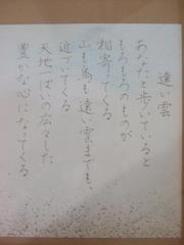 遠い雲
あなたと歩いていると
もろもろのものが
相寄ってくる
山も鳥も遠い雲までも、
近づいてくる
天地一ぱいの広々した
豊かな心になってくる